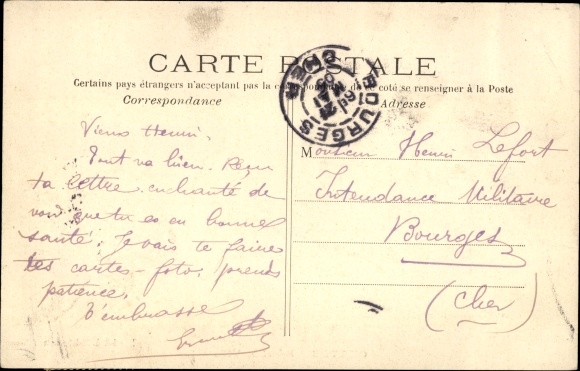 CARTE POSTALE
Certains pays étrangers n'acceptant pas la correspondance de ce coté se renseigner à la Poste
Correspondance
Adresse
BOURGES
CHER
Vieux Henri.
Tout va bien. Reçu
ta lettre enchanté de
voir que tu es en bonne
santé. Je vais te faire
tes cartes-foto. prends
patience.
T'embrasse
Monsieur Henri Lefort
Intendance Militaire
Bourges
(Cher)